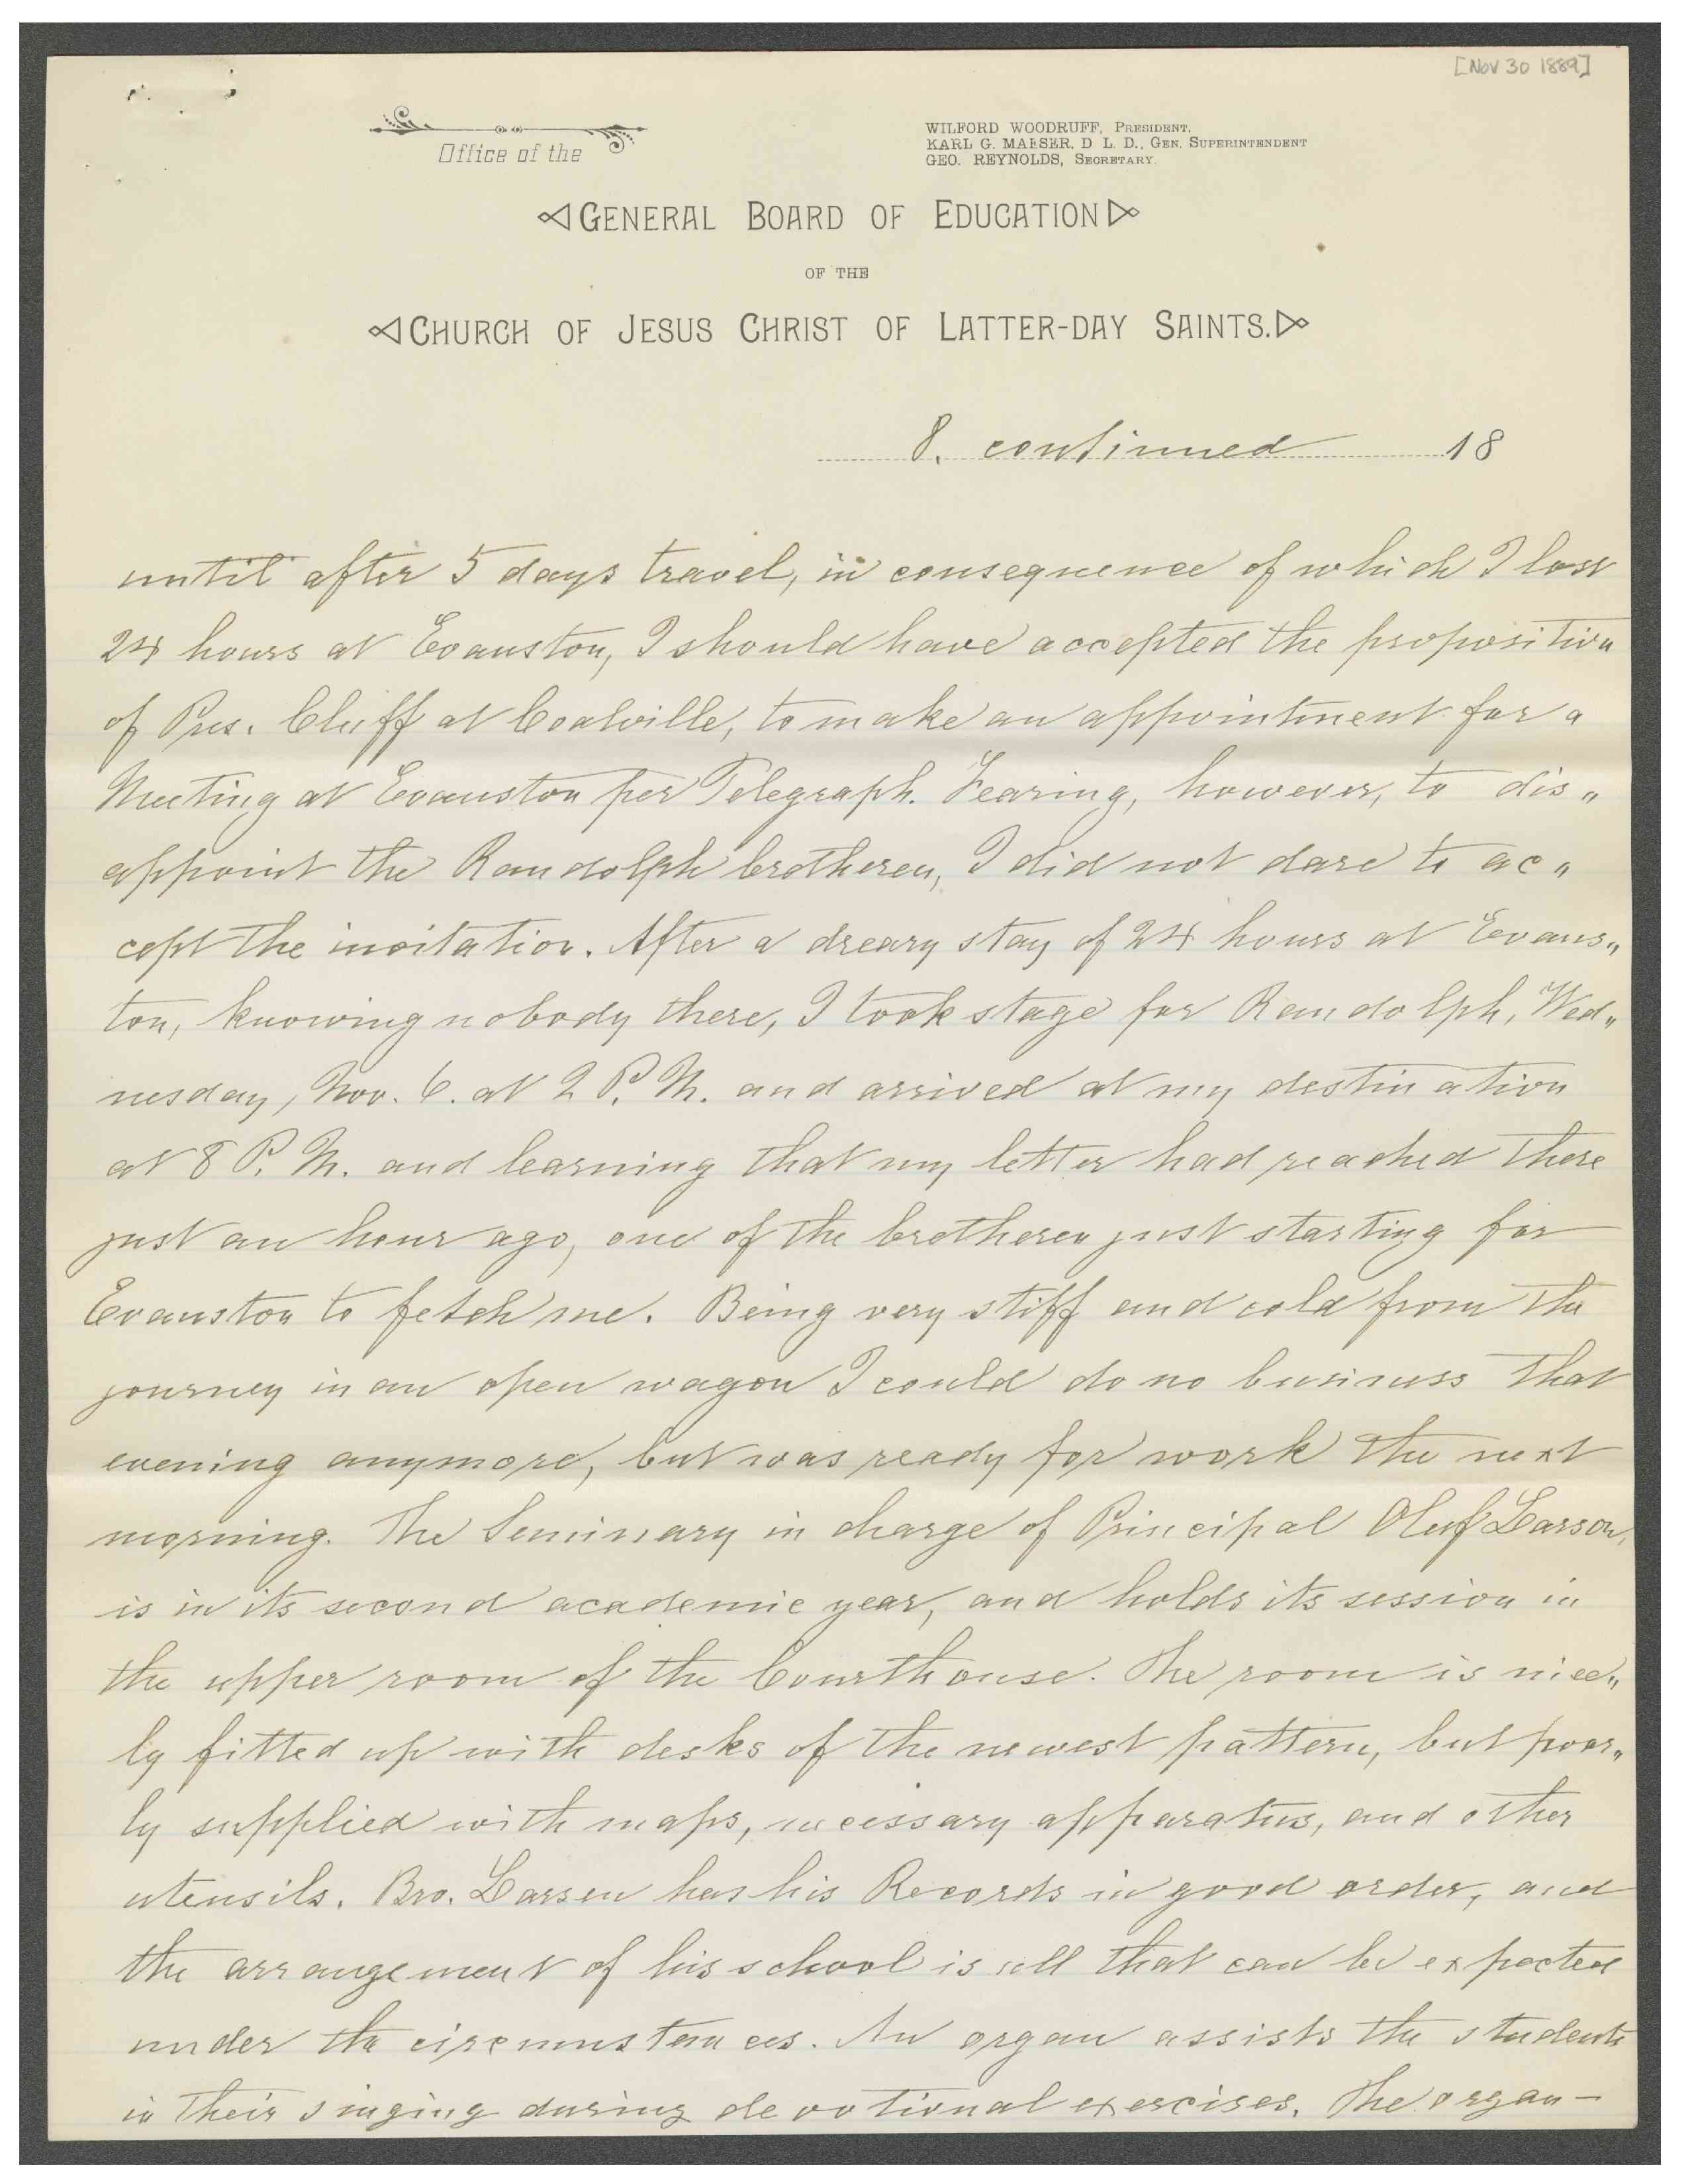 [Nov 30 1889]
Office of the
WILFORD WOODRUFF, PRESIDENT,
KARL G. MAESER, D L. D., GEN. SUPERINTENDENT
GEO. REYNOLDS, SECRETARY.
GENERAL BOARD OF EDUCATION
OF THE
CHURCH OF JESUS CHRIST OF LATTER-DAY SAINTS.
8. continued 18
until after 5 days travel, in consequence of which I lost
24 hours at Evanston, I should have accepted the proposition
of Pres. Cluff at Coalville, to make an appointment for a
Meeting at Evanston per Telegraph. Fearing, however, to dis„
appoint the Randolph brotheren, I did not dare to ac„
cept the invitation. After a dreary stay of 24 hours at Evans„
ton, knowing nobody there, I took stage for Randolph, Wed„
nesday, Nov. 6. at 2 P. M. and arrived at my destination
at 8 P. M. and learning that my letter had reached there
just an hour ago, one of the brotheren just starting for
Evanston to fetch me. Being very stiff and cold from the
journey in an open wagon I could do no business that
evening anymore, but was ready for work the next
morning. The Seminary in charge of Principal Oluf Larson,
is in its second academic year, and holds its session in
the upper room of the Courthouse. The room is nice„
ly fitted up with desks of the newest pattern, but poor„
ly supplied with maps, necessary apparatus, and other
utensils. Bro. Larsen has his Records in good order, and
the arrangement of his school is all that can be expected
under the circumstances. An organ assists the students
in their singing during devotional exercises. The organ-